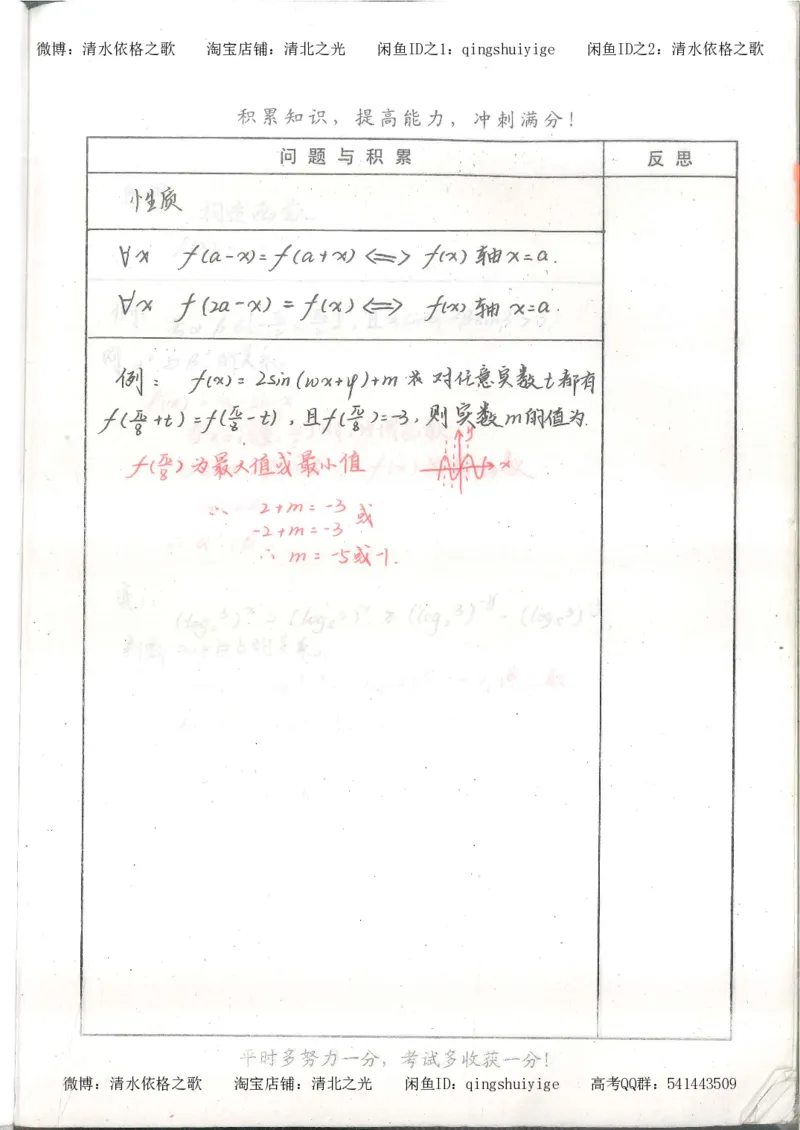 微博：清水依格之歌 淘宝店铺：清北之光 闲鱼ID之1：qingshuiyige 闲鱼ID之2：清水依格之歌
积累知识，提高能力，冲刺满分！
问题与积累 反思
性质
∀x f(a-x)=f(a+x)<=>f(x)轴x=a.
∀x f(2a-x)=f(x)<=> f(x)轴 x=a.
例： f(x)=2sin(wx+φ)+m 对任意实数t都有
f(π/8+t)=f(π/8-t)，且f(π/8)=-3，则实数m的值为.
f(π/8)为最大值或最小值 y x
∴ 2+m=-3 或
-2+m=-3
∴ m=-5或-1.
平时多努力一分，考试多收获一分！
微博：清水依格之歌 淘宝店铺：清北之光 闲鱼ID：qingshuiyige 高考QQ群：541443509